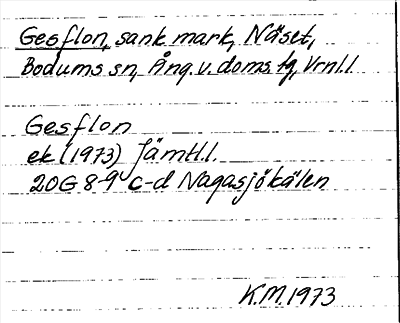 Gesflon, sank mark, Näset,
Bodums sn, Ång. v. doms. tg, Vrnl. l.
Gesflon
ek (1973) Jämtl. l.
20G 8-9 c-d Nagasjökälen
K.M. 1973